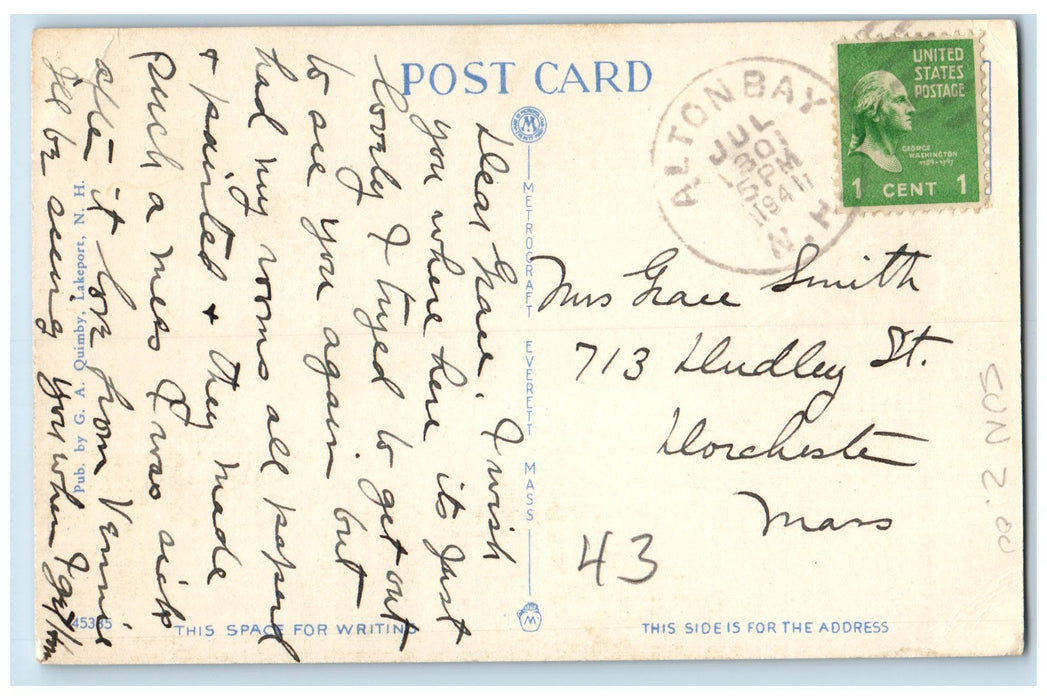 POST CARD
ALTON BAY
JUL
30
5 PM
1941
N.H.
UNITED
STATES
POSTAGE
GEORGE
WASHINGTON
1789-1797
1 CENT 1
Dear Grace. I wish
you where here its Just
lovely I tryed to get out
to see you again but
had my rooms all papered
+ painted + they made
such a mess I was sick
after it love from
I'll be seeing you when I get
METROCRAFT EVERETT MASS
Pub. by G. A. Quimby, Lakeport, N. H.
Mrs Grace Smith
713 Dudley St.
Dorchester
Mass
43
2.00
45335
THIS SPACE FOR WRITING
THIS SIDE IS FOR THE ADDRESS